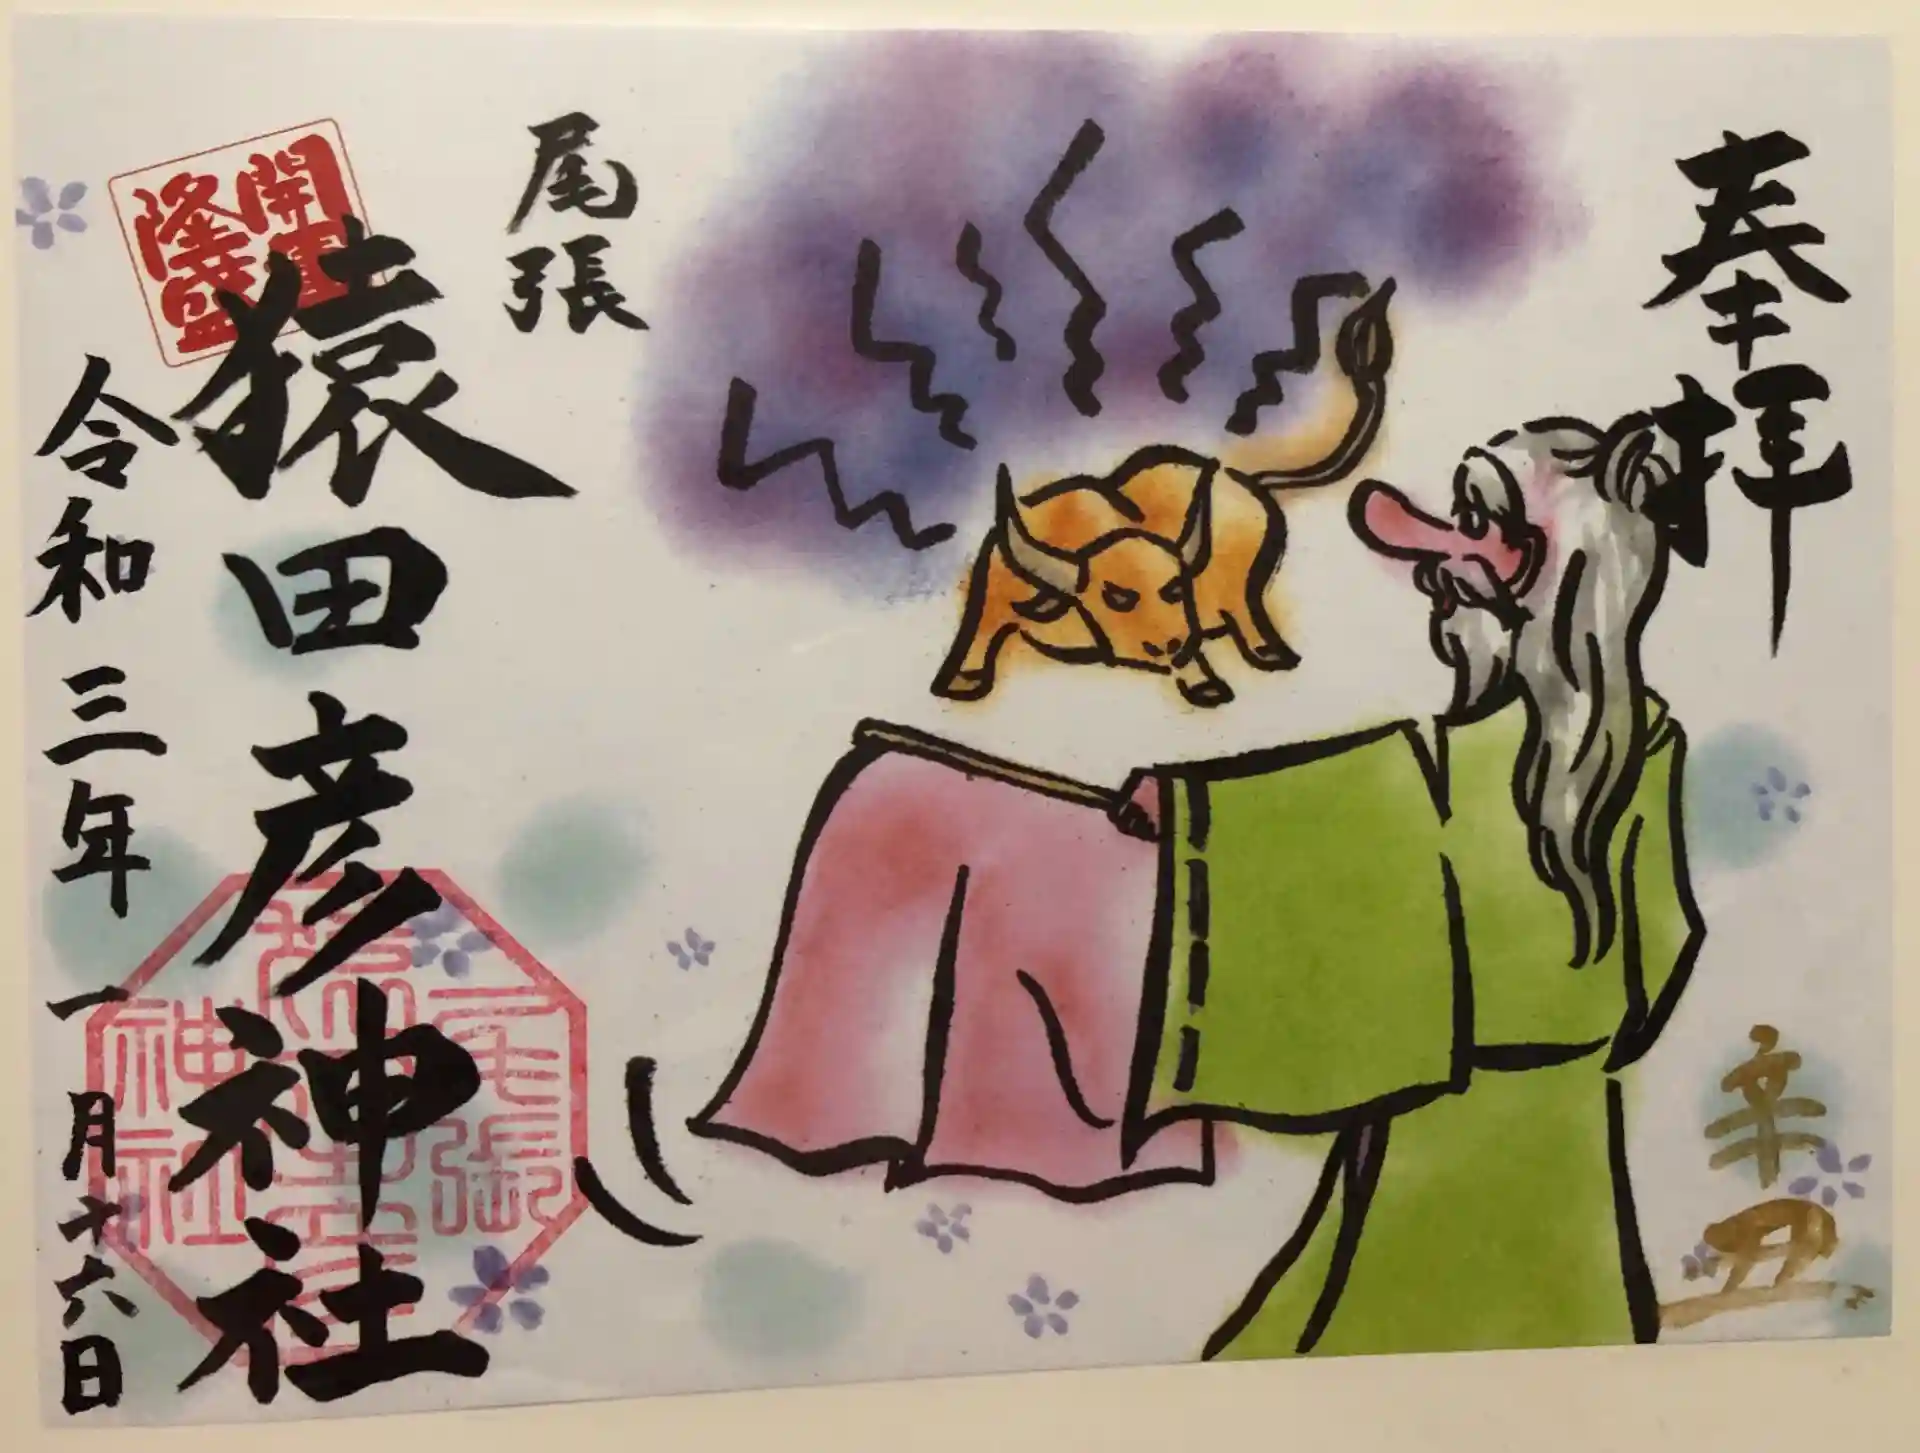 奉拝
辛丑
尾張
開運
隆盛
猿田彦神社
尾張
猿田彦
神社
令和三年一月十六日